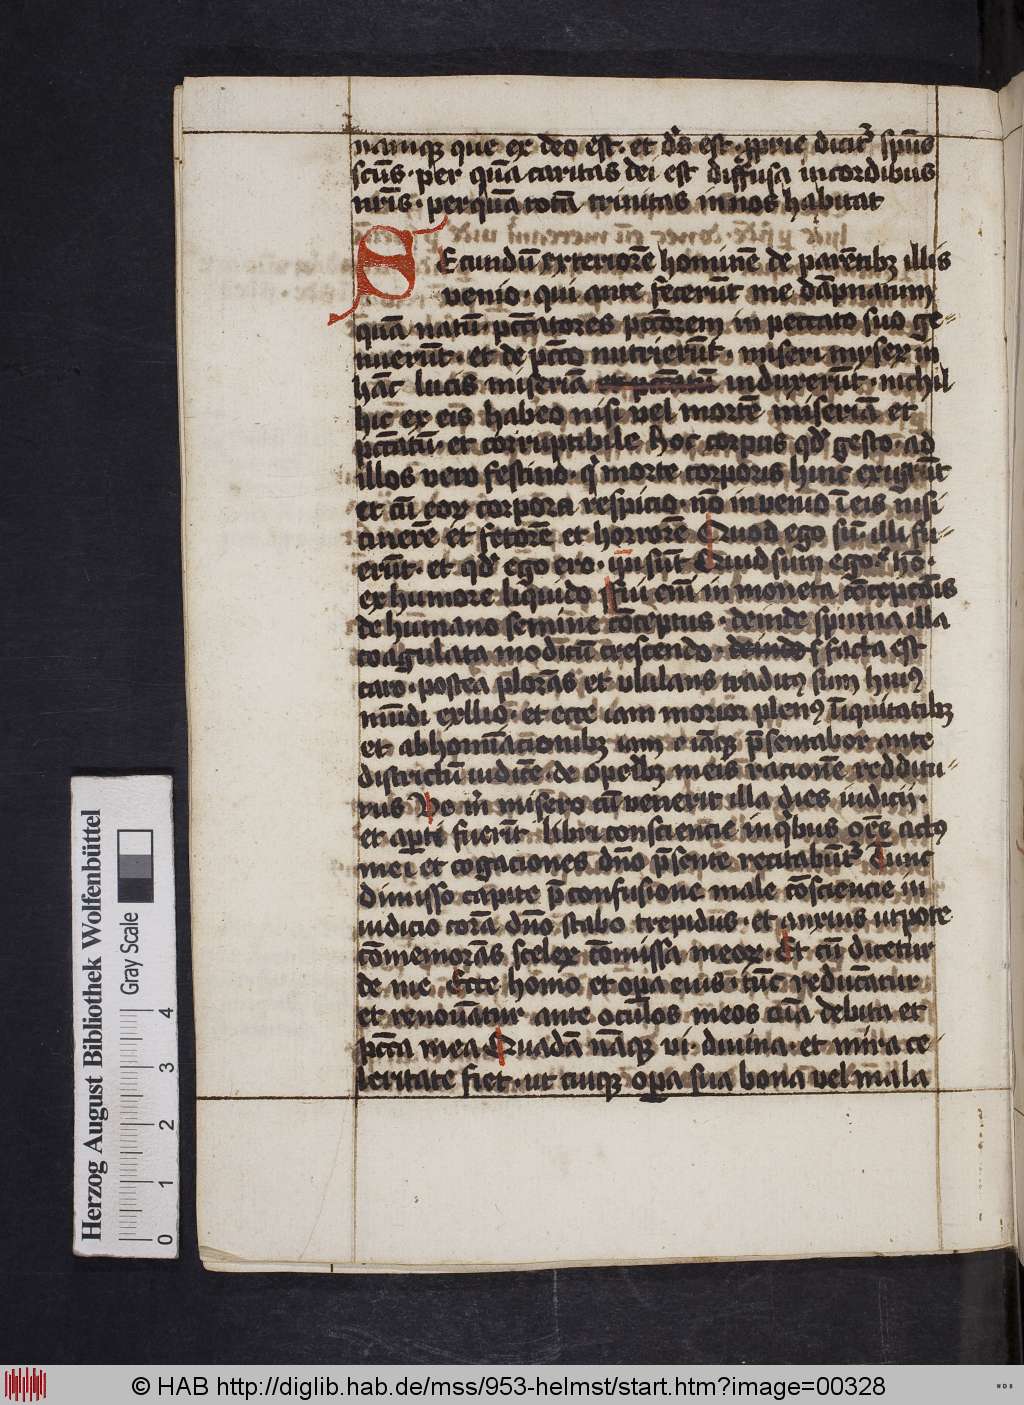 namq̄ que ex deo est · et de᷒s est · ꝓprie dicit᷑ spūs
scūs · per quā caritas dei est diffusa in cordibus
nr̄is · per quā tota trinitas in nos habitat
SEcundū exteriorē hominē de parētibꝫ illis
venio · qui ante fecerūt me dāpnatum
quā natū · pctātores pctōrem in peccato suo ge⸗
nuerūt · et de pctō nutrierūt · miseri miseꝝ in
hāc lucis miseriā et pctātū induxerūt · nichil
hic ex eis habeo nisi vel mortē miseriā et
pctātū · et corruptibile hoc corpus qd̄ gesto · ad
illos vero festino · q̇ morte corporis hinc exigrūt
et cū eoꝝ corpora respicio · nō invenio ī eis nisi
cinerē et fetorē et horrorē Quod ego sū · illi fu⸗
erūt · et qd̄ ego ero · ip̄i sunt Quid sum ego · hō ·
ex humore liquido Fui em̄ in moneta cōcepcōis
de humano semine cōceptus · deinde spuma illa
coagulata modicū crescendo · deinde facta est
caro · postea plorās et ululans traditꝰ sum huiꝰ
mūdi exilio · et ecce iam morior plenꝰ īiquitatibꝫ
et abhomīacionibꝫ iam et iāq̄ p̄sentabor ante
districtū iudicē · de opeībꝫ meis racionē redditu⸗
rus Ve m̄ misero cū venerit illa dies iudicii ·
et apti fuerīt libri consciencie in q̇bus oēs actꝰ
mei et cogaciones dn̄o p̄sente recitabūt᷑ Tunc
dimisso capite p̄ confusione male cōsciencie in
iudicio corā dn̄o stabo trepidus · et anxius utpote
cōmemorās sceleꝝ cōmissa meoꝝ · Et cū dicetur
de me Ecce homo et opa eius · tūc reducātur
et renovātur ante ocūlos meos cūcta debita et
pctā mea Quadā nāq̄ vi diuina · et mira ce
leritate fiet · ut cuiq̄ opa sua bona vel mala
Herzog August Bibliothek Wolfenbüttel
Gray Scale
0 1 2 3 4
© HAB http://diglib.hab.de/mss/953-helmst/start.htm?image=00328